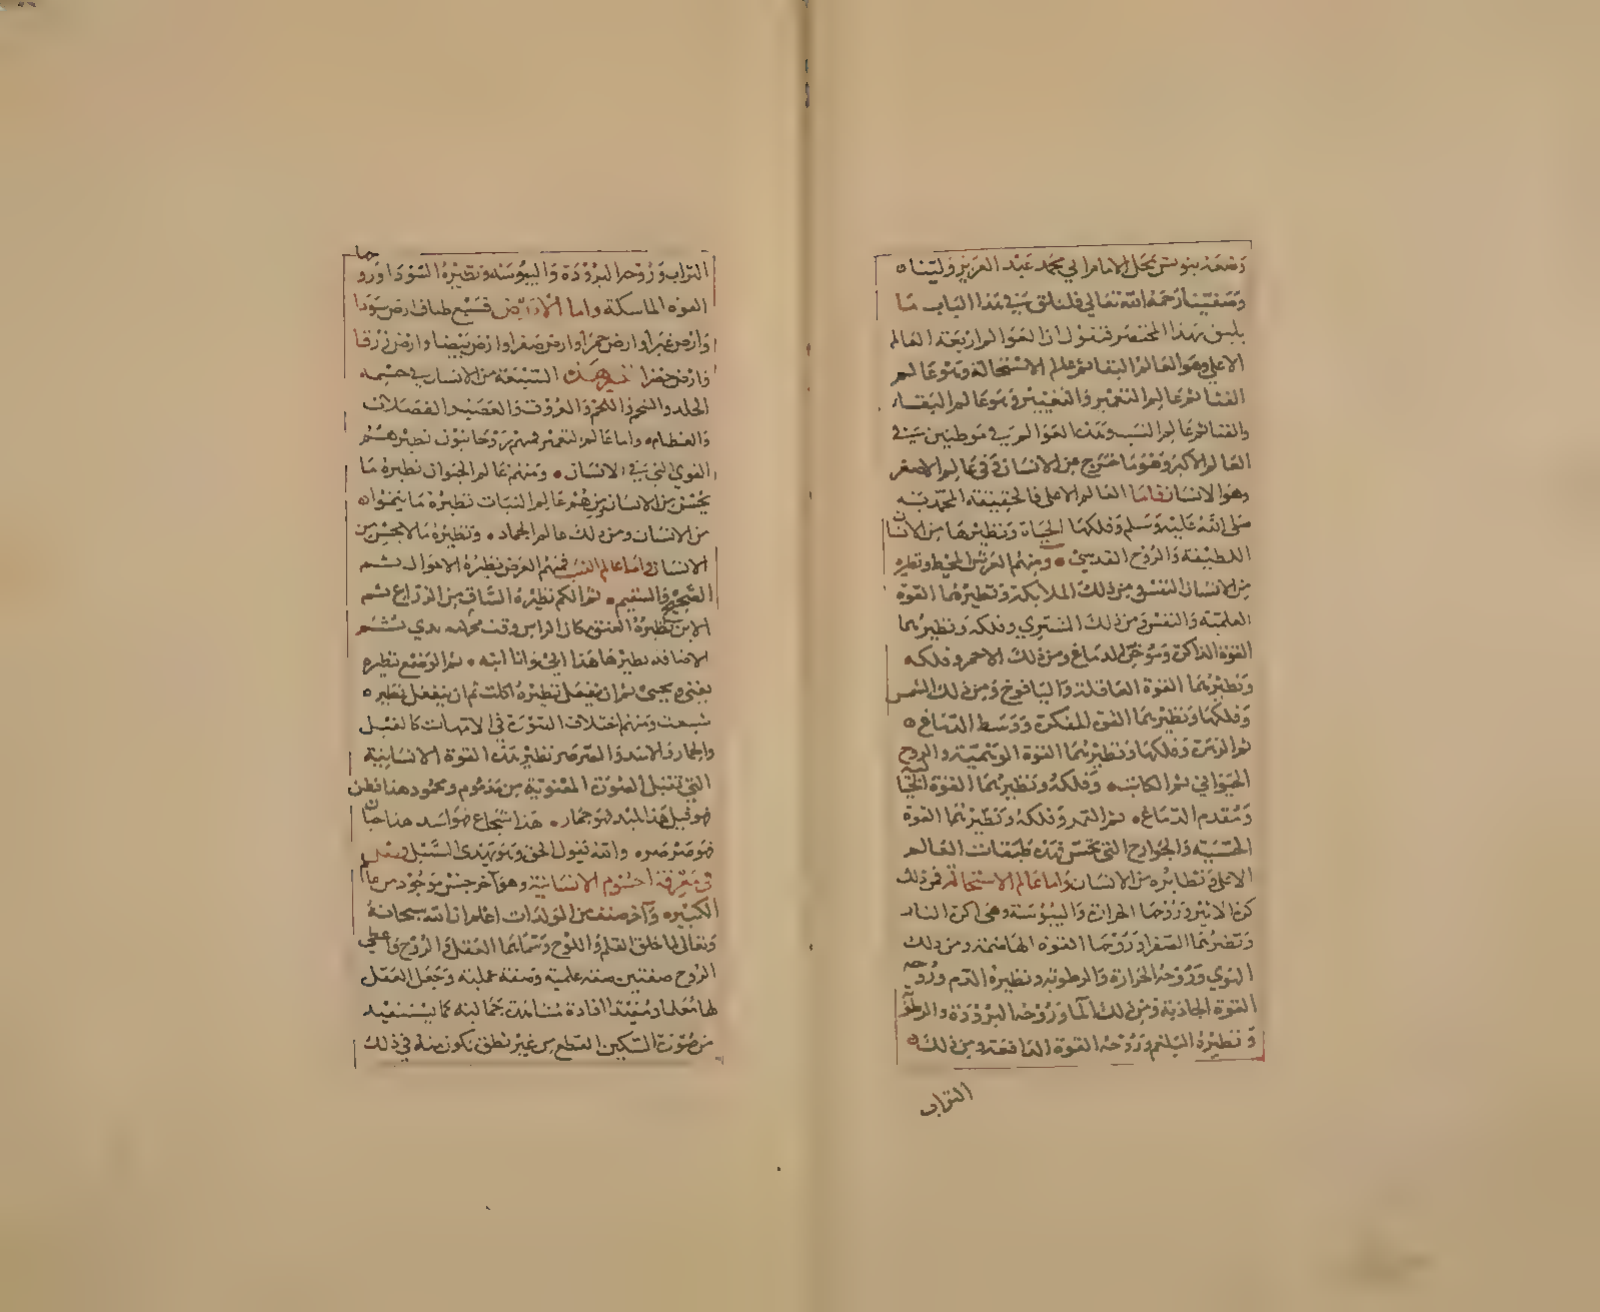 وضعته بتونس بمحل الامام ابي محمد عبد العزيز ولينا
وصفينا رحمه الله تعالى فلنلق منه في هذا الباب ما
يليق بهذا المختصر فنقول ان العوالم اربعة العالم
الاعلى وهو عالم البقا ثم عالم الاستحالة وهو عالم
الفنا ثم عالم التعمير وهو عالم البقا
والفنا ثم عالم النسب وهذه العوالم في موطنين في
العالم الاكبر وهو ما خرج عن الانسان وفي عالم الاصغر
وهو الانسان فاما العالم الاعلى فالحقيقة المحمدية
صلى الله عليه وسلم وفلكها الحياة ونظيرها من الانسان
اللطيفة والروح القدسي ومنهم العرش المحيط ونظيره
من الانسان النفس ومن ذلك الملايكة ونظيرهما القوة
العلمية والنفس ومن ذلك المشتري وفلكه ونظيرهما
القوة الذاكرة وموخر الدماغ ومن ذلك الاحمر وفلكه
ونظيرهما القوة العاقلة واليافوخ ومن ذلك الشمس
وفلكها ونظيرهما القوة المفكرة ووسط الدماغ
ثم الزهرة وفلكها ونظيرهما القوة الوهمية والروح
الحيواني ثم الكاتب وفلكه ونظيرهما القوة الخيالية
ومقدم الدماغ ثم القمر وفلكه ونظيرهما القوة
الحسية والجوارح التي تحس فهذه طبقات العالم
الاعلى ونظايره من الانسان واما عالم الاستحالة فمن ذلك
كرة الاثير وروحها الحرارة واليبوسة وهي كرة النار
ونظيرهما الصفرا وروحها القوة الهاضمة ومن ذلك
الهوي وروحه الحرارة والرطوبة ونظيره الدم وروحه
القوة الجاذبة ومن ذلك الما وروحه البرودة والرطوبة
ونظيره البلغم وروحه القوة الدافعة ومن ذلك
التراب
التراب وروحه البرودة واليبوسة ونظيره السودا وروحها
القوة الماسكة واما الاراضي فسبع طباق ارض سودا
وارض غبرا وارض حمرا وارض صفرا وارض بيضا وارض زرقا
وارض خضرا نظير هذه السبعة من الانسان في جسمه
الجلد والشحم واللحم والعروق والعصب والعضلات
والعظام واما عالم التعمير فمنهم الروحانيون نظيرهم
القوي التي في الانسان ومنهم عالم الحيوان نظيره ما
يحس من الانسان ومنهم عالم النبات نظيره ما ينموا
من الانسان ومن ذلك عالم الجماد ونظيره ما لا يحس من
الانسان واما عالم النسب فمنهم العرض نظيره الاحوال ثم
الصحيح والسقيم ثم الكم نظيره الساق من الذراع ثم
الاين نظيره العنق مكان الراس وقت ثم
الاضافة نظيرها هذا ابي وانا ابنه ثم الوضع نظيره
ثم ان يفعل نظيره اكلت ثم ان ينفعل نظيره
شبعت ومنهم اختلاف الصور في الامهات كالفيل
والحمار والاسد والصرصر نظير هذه القوة الانسانية
التي تقبل الصور المعنوية من مذموم ومحمود هذا فطن
فهو فيل هذا بليد فهو حمار هذا شجاع فهو اسد هذا جبان
فهو صرصر والله يقول الحق وهو يهدي السبيل فصل
في معرفة الجسوم الانسانية وهو آخر جنس موجود من عالم
الكبير وآخر صنف من المولدات اعلم ان الله سبحانه
وتعالى لما خلق القلم واللوح وسماهما العقل والروح واعطى
الروح صفتين صفة علمية وصفة عملية وجعل العقل
لها معلما ومفيدا افادة مشاهدة حالية كما يستفيد
من صورة السكين القطع من غير نطق يكون منه في ذلك